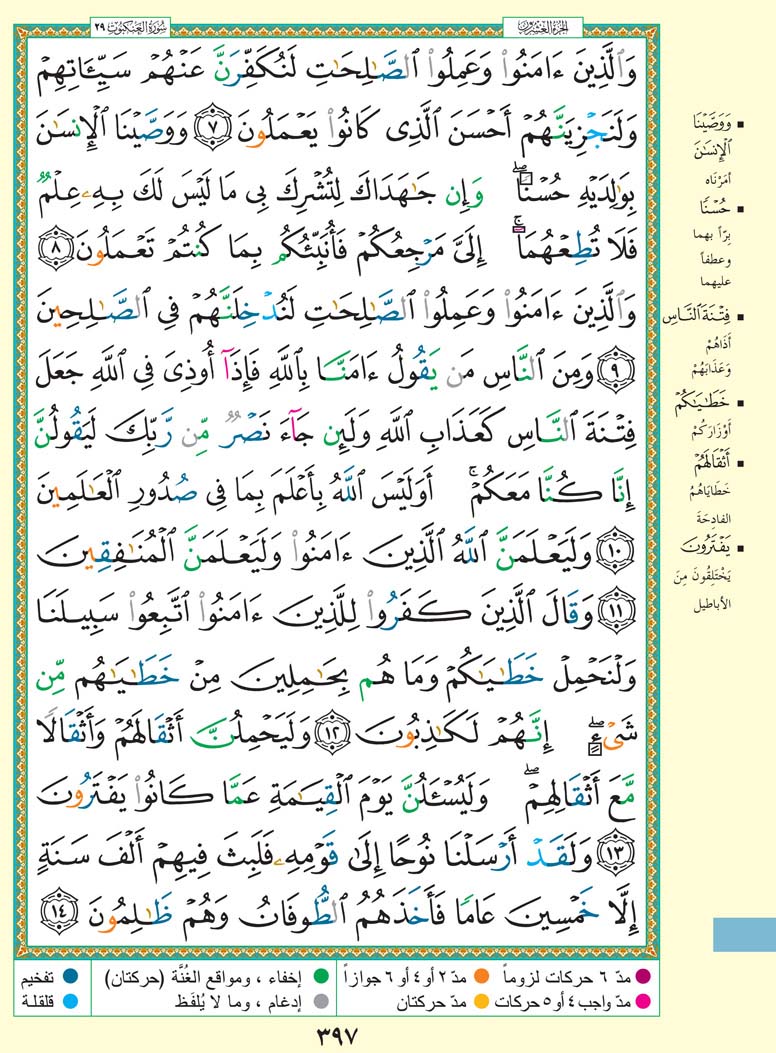 سُورَةُ العَنكَبُوت ٢٩
الجزء العشرون
وَٱلَّذِينَ ءَامَنُوا۟ وَعَمِلُوا۟ ٱلصَّٰلِحَٰتِ لَنُكَفِّرَنَّ عَنْهُمْ سَيِّـَٔاتِهِمْ
وَلَنَجْزِيَنَّهُمْ أَحْسَنَ ٱلَّذِى كَانُوا۟ يَعْمَلُونَ ٧ وَوَصَّيْنَا ٱلْإِنسَٰنَ
بِوَٰلِدَيْهِ حُسْنًاۖ وَإِن جَٰهَدَاكَ لِتُشْرِكَ بِى مَا لَيْسَ لَكَ بِهِۦ عِلْمٌ
فَلَا تُطِعْهُمَآۚ إِلَىَّ مَرْجِعُكُمْ فَأُنَبِّئُكُم بِمَا كُنتُمْ تَعْمَلُونَ ٨
وَٱلَّذِينَ ءَامَنُوا۟ وَعَمِلُوا۟ ٱلصَّٰلِحَٰتِ لَنُدْخِلَنَّهُمْ فِى ٱلصَّٰلِحِينَ
٩ وَمِنَ ٱلنَّاسِ مَن يَقُولُ ءَامَنَّا بِٱللَّهِ فَإِذَآ أُوذِىَ فِى ٱللَّهِ جَعَلَ
فِتْنَةَ ٱلنَّاسِ كَعَذَابِ ٱللَّهِ وَلَئِن جَآءَ نَصْرٌ مِّن رَّبِّكَ لَيَقُولُنَّ
إِنَّا كُنَّا مَعَكُمْۚ أَوَلَيْسَ ٱللَّهُ بِأَعْلَمَ بِمَا فِى صُدُورِ ٱلْعَٰلَمِينَ
١٠ وَلَيَعْلَمَنَّ ٱللَّهُ ٱلَّذِينَ ءَامَنُوا۟ وَلَيَعْلَمَنَّ ٱلْمُنَٰفِقِينَ
١١ وَقَالَ ٱلَّذِينَ كَفَرُوا۟ لِلَّذِينَ ءَامَنُوا۟ ٱتَّبِعُوا۟ سَبِيلَنَا
وَلْنَحْمِلْ خَطَٰيَٰكُمْ وَمَا هُم بِحَٰمِلِينَ مِنْ خَطَٰيَٰهُم مِّن
شَىْءٍۖ إِنَّهُمْ لَكَٰذِبُونَ ١٢ وَلَيَحْمِلُنَّ أَثْقَالَهُمْ وَأَثْقَالًا
مَّعَ أَثْقَالِهِمْۖ وَلَيُسْـَٔلُنَّ يَوْمَ ٱلْقِيَٰمَةِ عَمَّا كَانُوا۟ يَفْتَرُونَ
١٣ وَلَقَدْ أَرْسَلْنَا نُوحًا إِلَىٰ قَوْمِهِۦ فَلَبِثَ فِيهِمْ أَلْفَ سَنَةٍ
إِلَّا خَمْسِينَ عَامًا فَأَخَذَهُمُ ٱلطُّوفَانُ وَهُمْ ظَٰلِمُونَ ١٤
▪ وَوَصَّيْنَا
ٱلْإِنسَٰنَ
أمَرْنَاه
▪ حُسْنًا
بِرّاً بهما
وعطفاً
عليهما
▪ فِتْنَةَ ٱلنَّاسِ
أذَاهُمْ
وَعَذَابَهُمْ
▪ خَطَٰيَٰكُمْ
أوْزَارَكُمْ
▪ أَثْقَالَهُمْ
خَطاياهُمُ
الفادِحَةَ
▪ يَفْتَرُونَ
يَخْتَلِقُونَ مِنَ
الأباطيل
مدّ ٦ حركات لزوماً ● مدّ ٢ أو ٤ أو ٦ جوازاً ● إخفاء ، ومواقع الغُنَّة (حركتان) ● تفخيم
مدّ واجب ٤ أو ٥ حركات ● مدّ حركتان ● إدغام ، وما لا يُلفَظ ● قلقلة
٣٩٧